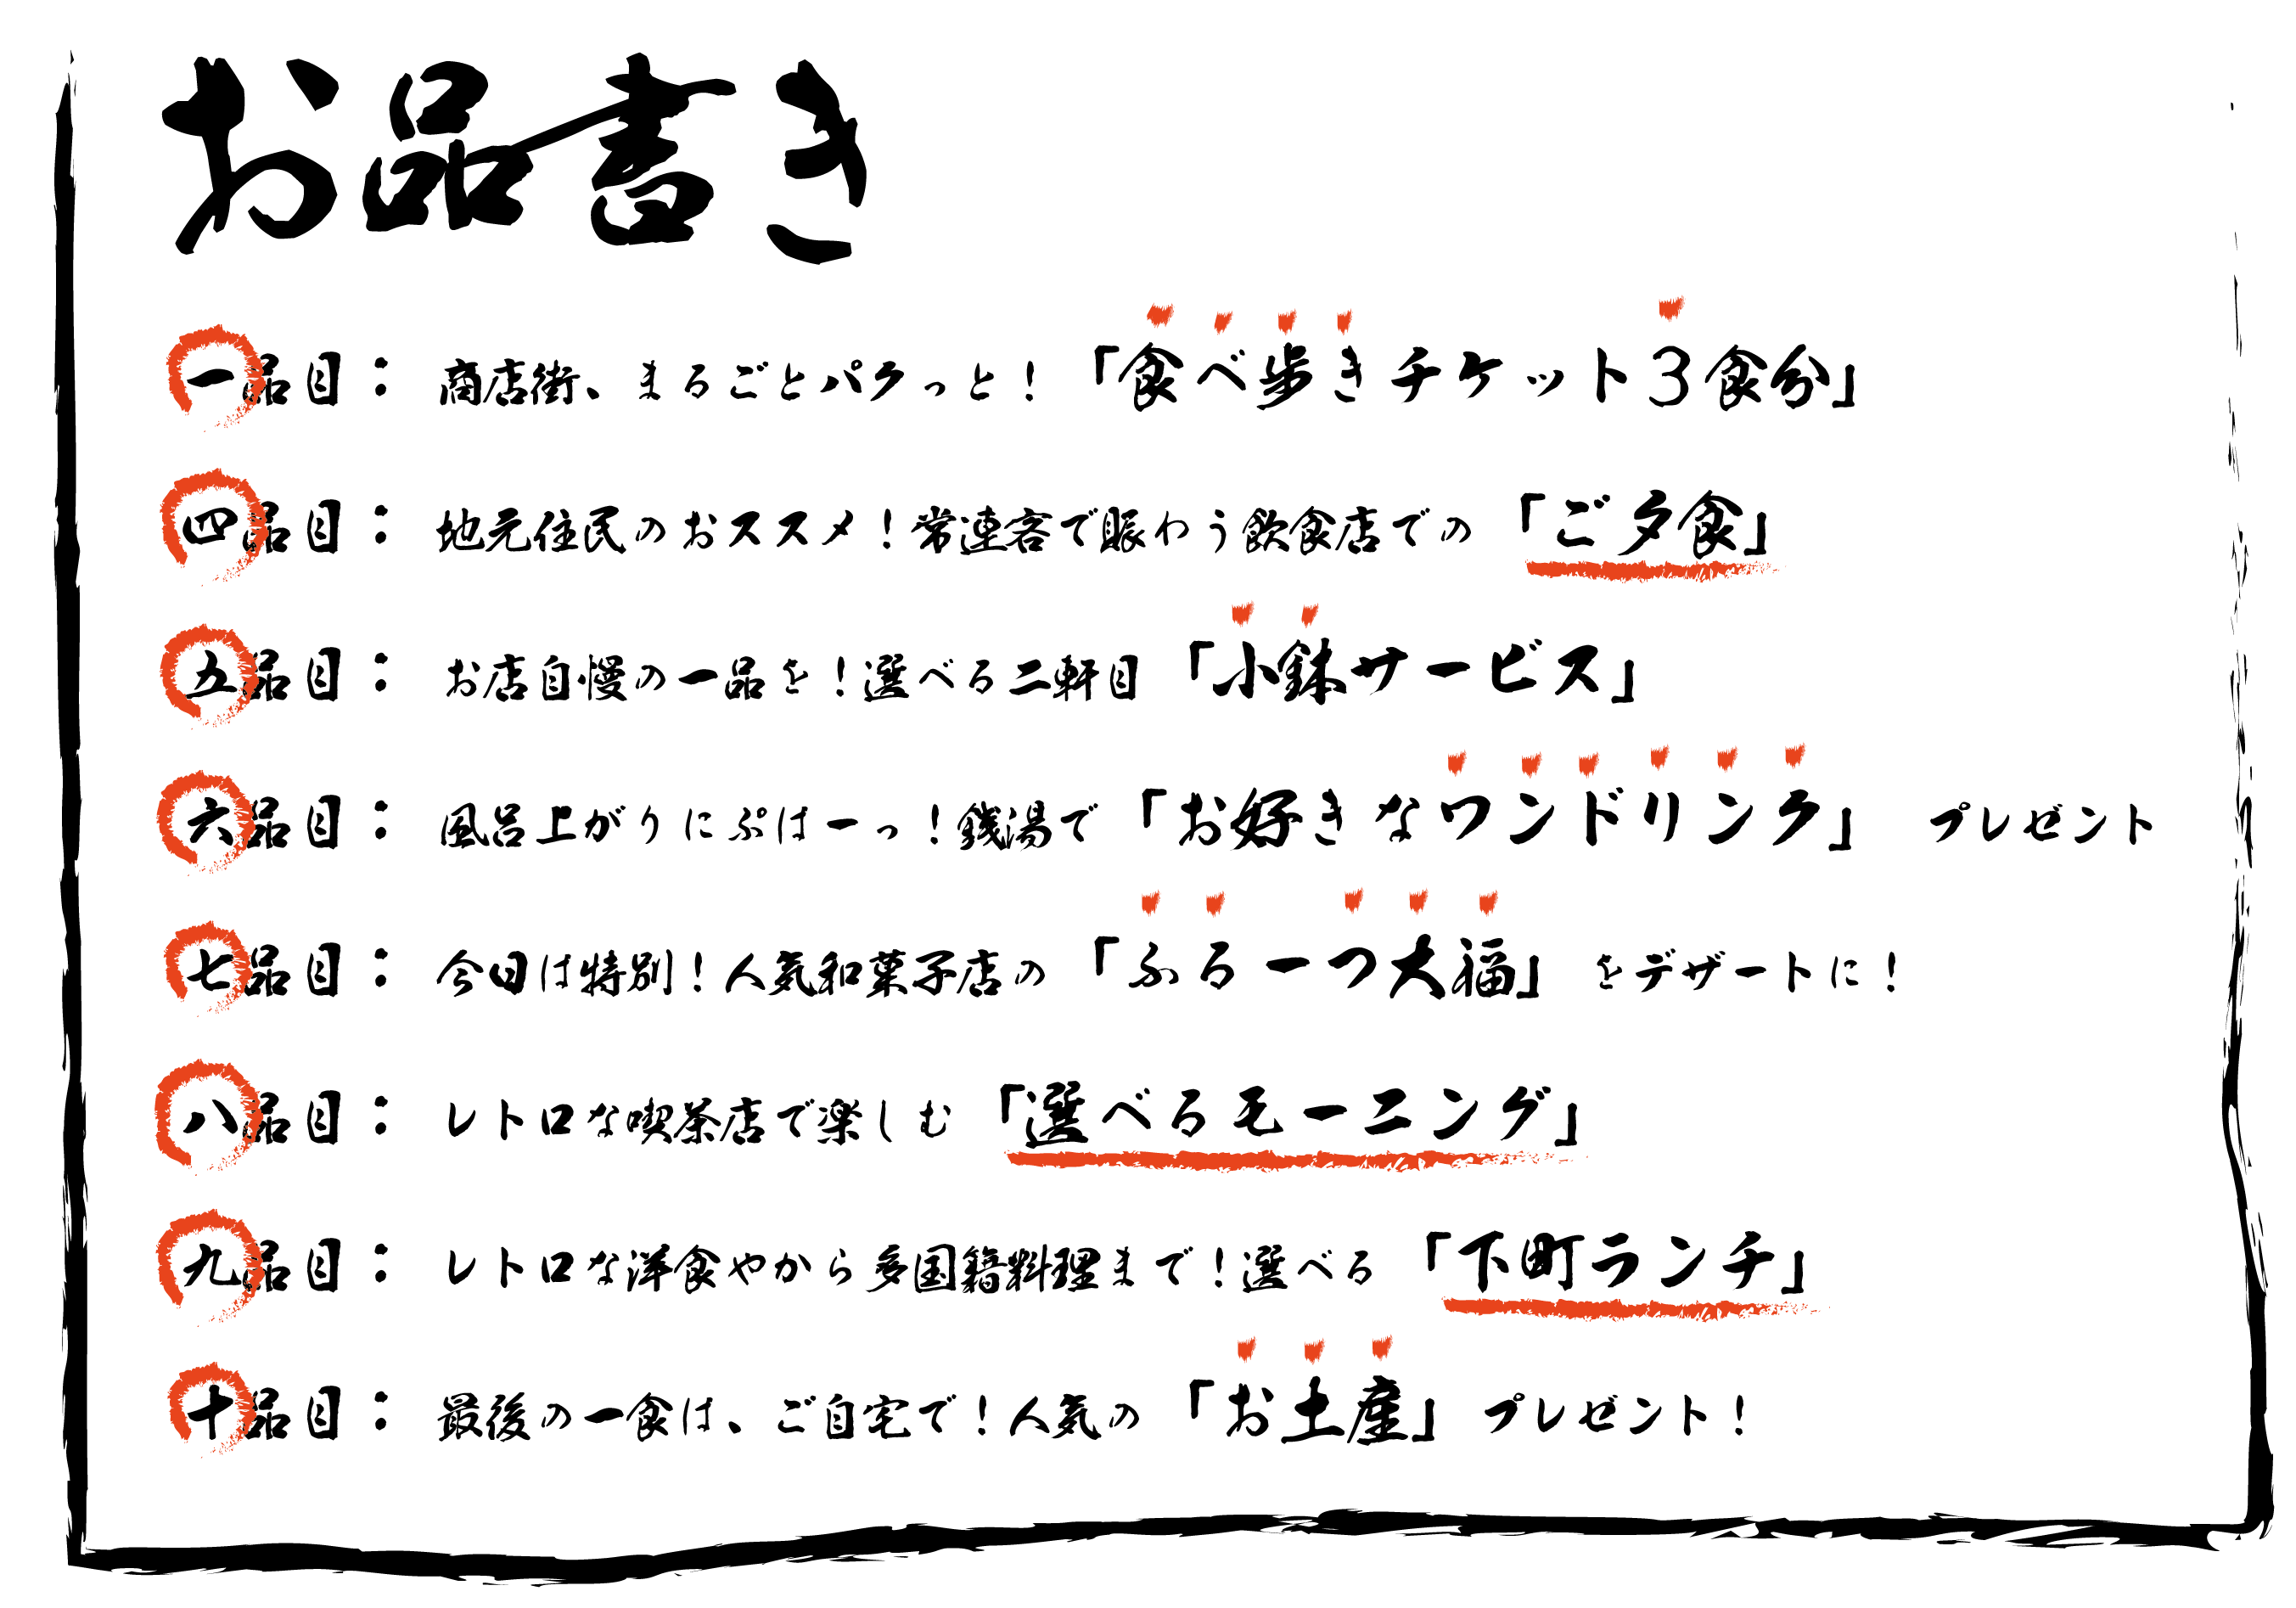 お品書き
一品目： 商店街、まるごとパクっと！「食べ歩きチケット３食分」
四品目： 地元住民のおススメ！常連客で賑わう飲食店での「ご夕食」
五品目： お店自慢の一品を！選べる二軒目「小鉢サービス」
六品目： 風呂上がりにぷはーっ！銭湯で「お好きなワンドリンク」 プレゼント
七品目： 今日は特別！人気和菓子店の「ふるーつ大福」をデザートに！
八品目： レトロな喫茶店で楽しむ「選べるモーニング」
九品目： レトロな洋食やから多国籍料理まで！選べる「下町ランチ」
十品目： 最後の一食は、ご自宅で！人気の「お土産」プレゼント！